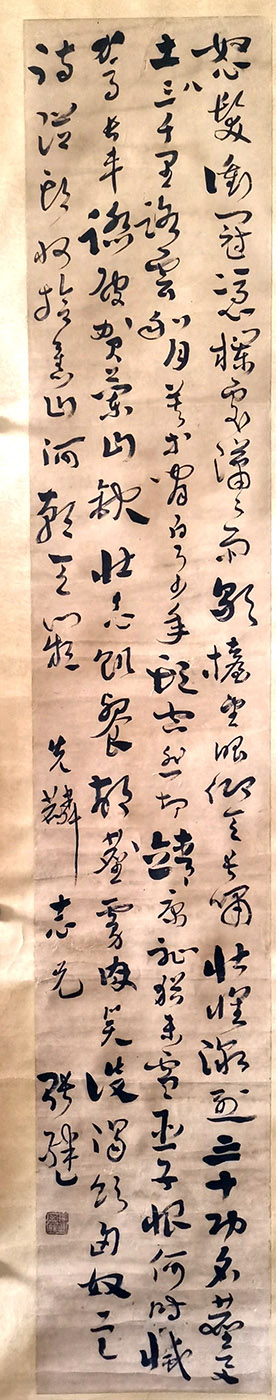 怒髮衝冠憑欄處瀟瀟雨歇擡望眼仰天長嘯壯懷激烈三十功名塵與
土三八千里路雲和月莫等閒白了少年頭空悲切靖康恥猶未雪臣子恨何時滅
駕長車踏破賀蘭山缺壯志飢餐胡塵虜肉笑談渴飲匈奴血
待從頭收拾舊山河朝天闕 先麟志兄 張繼